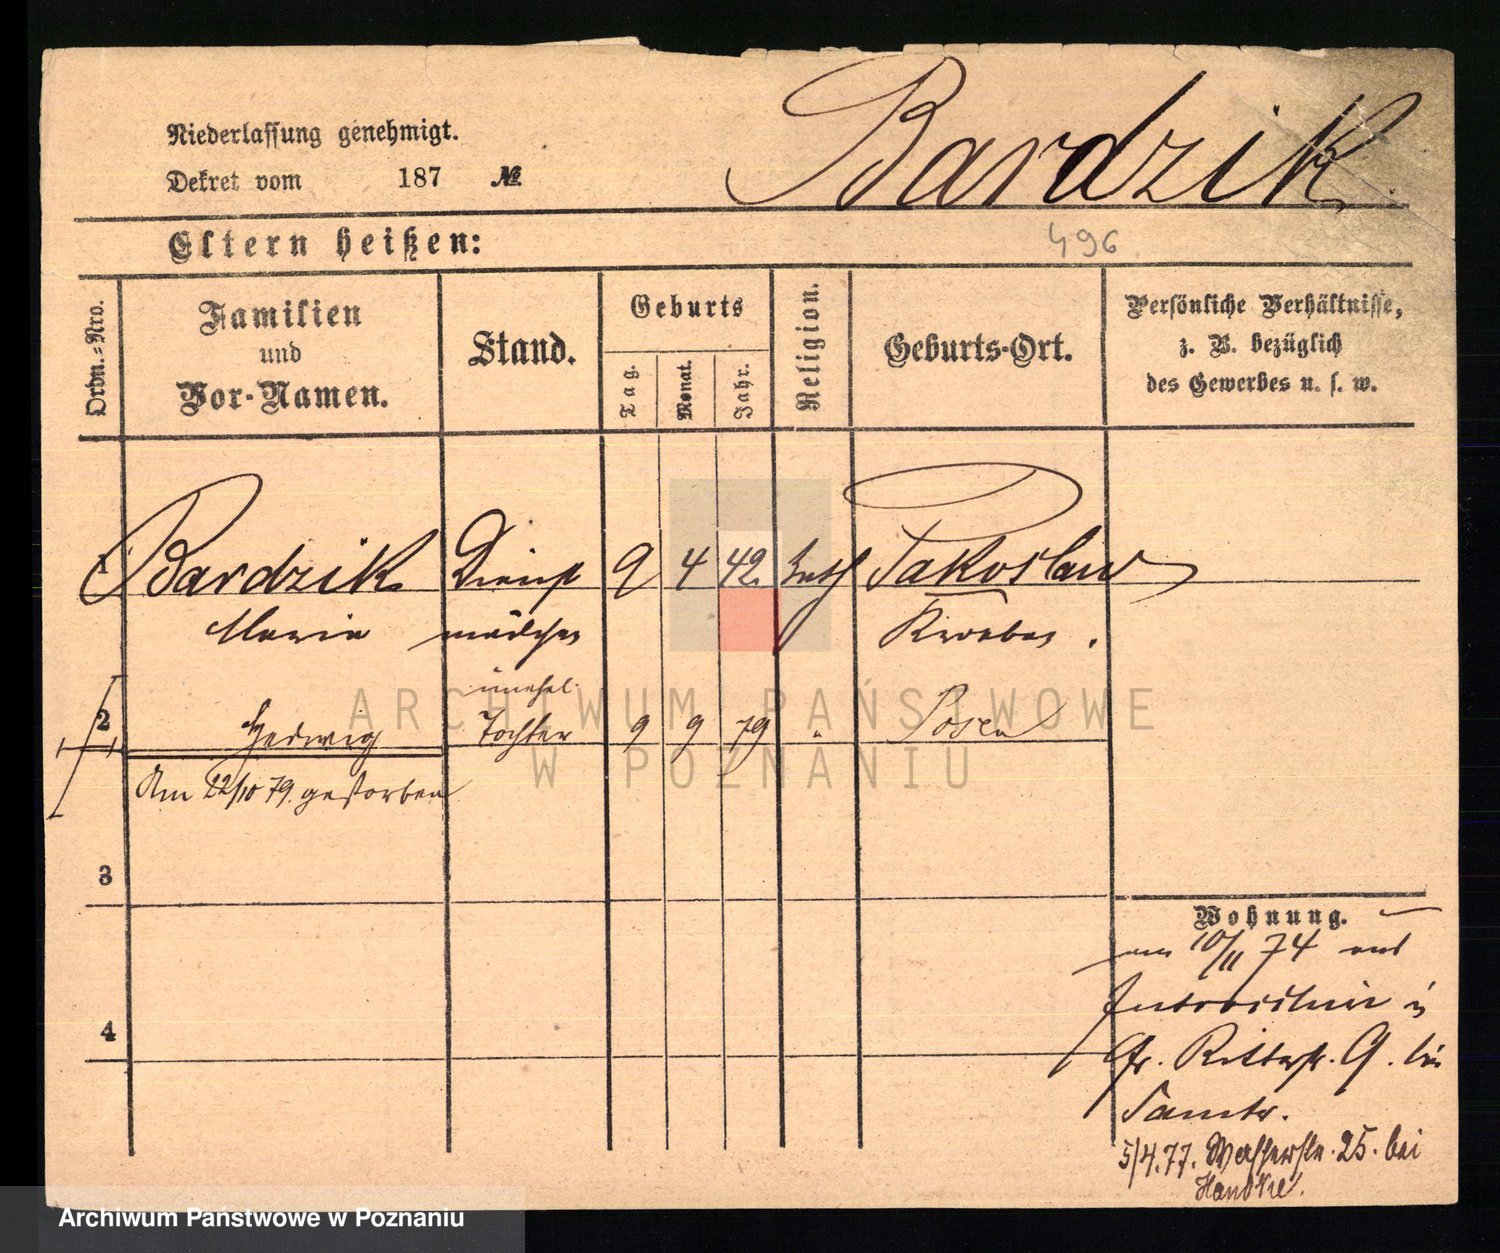 Niederlassung genehmigt.
Dekret vom 187 №
Bardzik
Eltern heißen:
496
Ordn.-Nro.
Familien
und
Vor-Namen.
Stand.
Geburts
Tag.
Monat.
Jahr.
Religion.
Geburts-Ort.
Persönliche Verhältnisse,
z. B. bezüglich
des Gewerbes u. s. w.
1 Bardzik Dienst 9 4 42. kath Pakoslaw
Marie mädchen Kroeben.
unehel.
2 Hedwig Tochter 9 9 79 " Posen
Am 22/10 79. gestorben
3
4
Wohnung.
am 10/11 74 aus
in
Gr. Ritterstr. 9. bei
5/4.77. Wasserstr. 25. bei
Handke.
ARCHIWUM PAŃSTWOWE
W POZNANIU
Archiwum Państwowe w Poznaniu